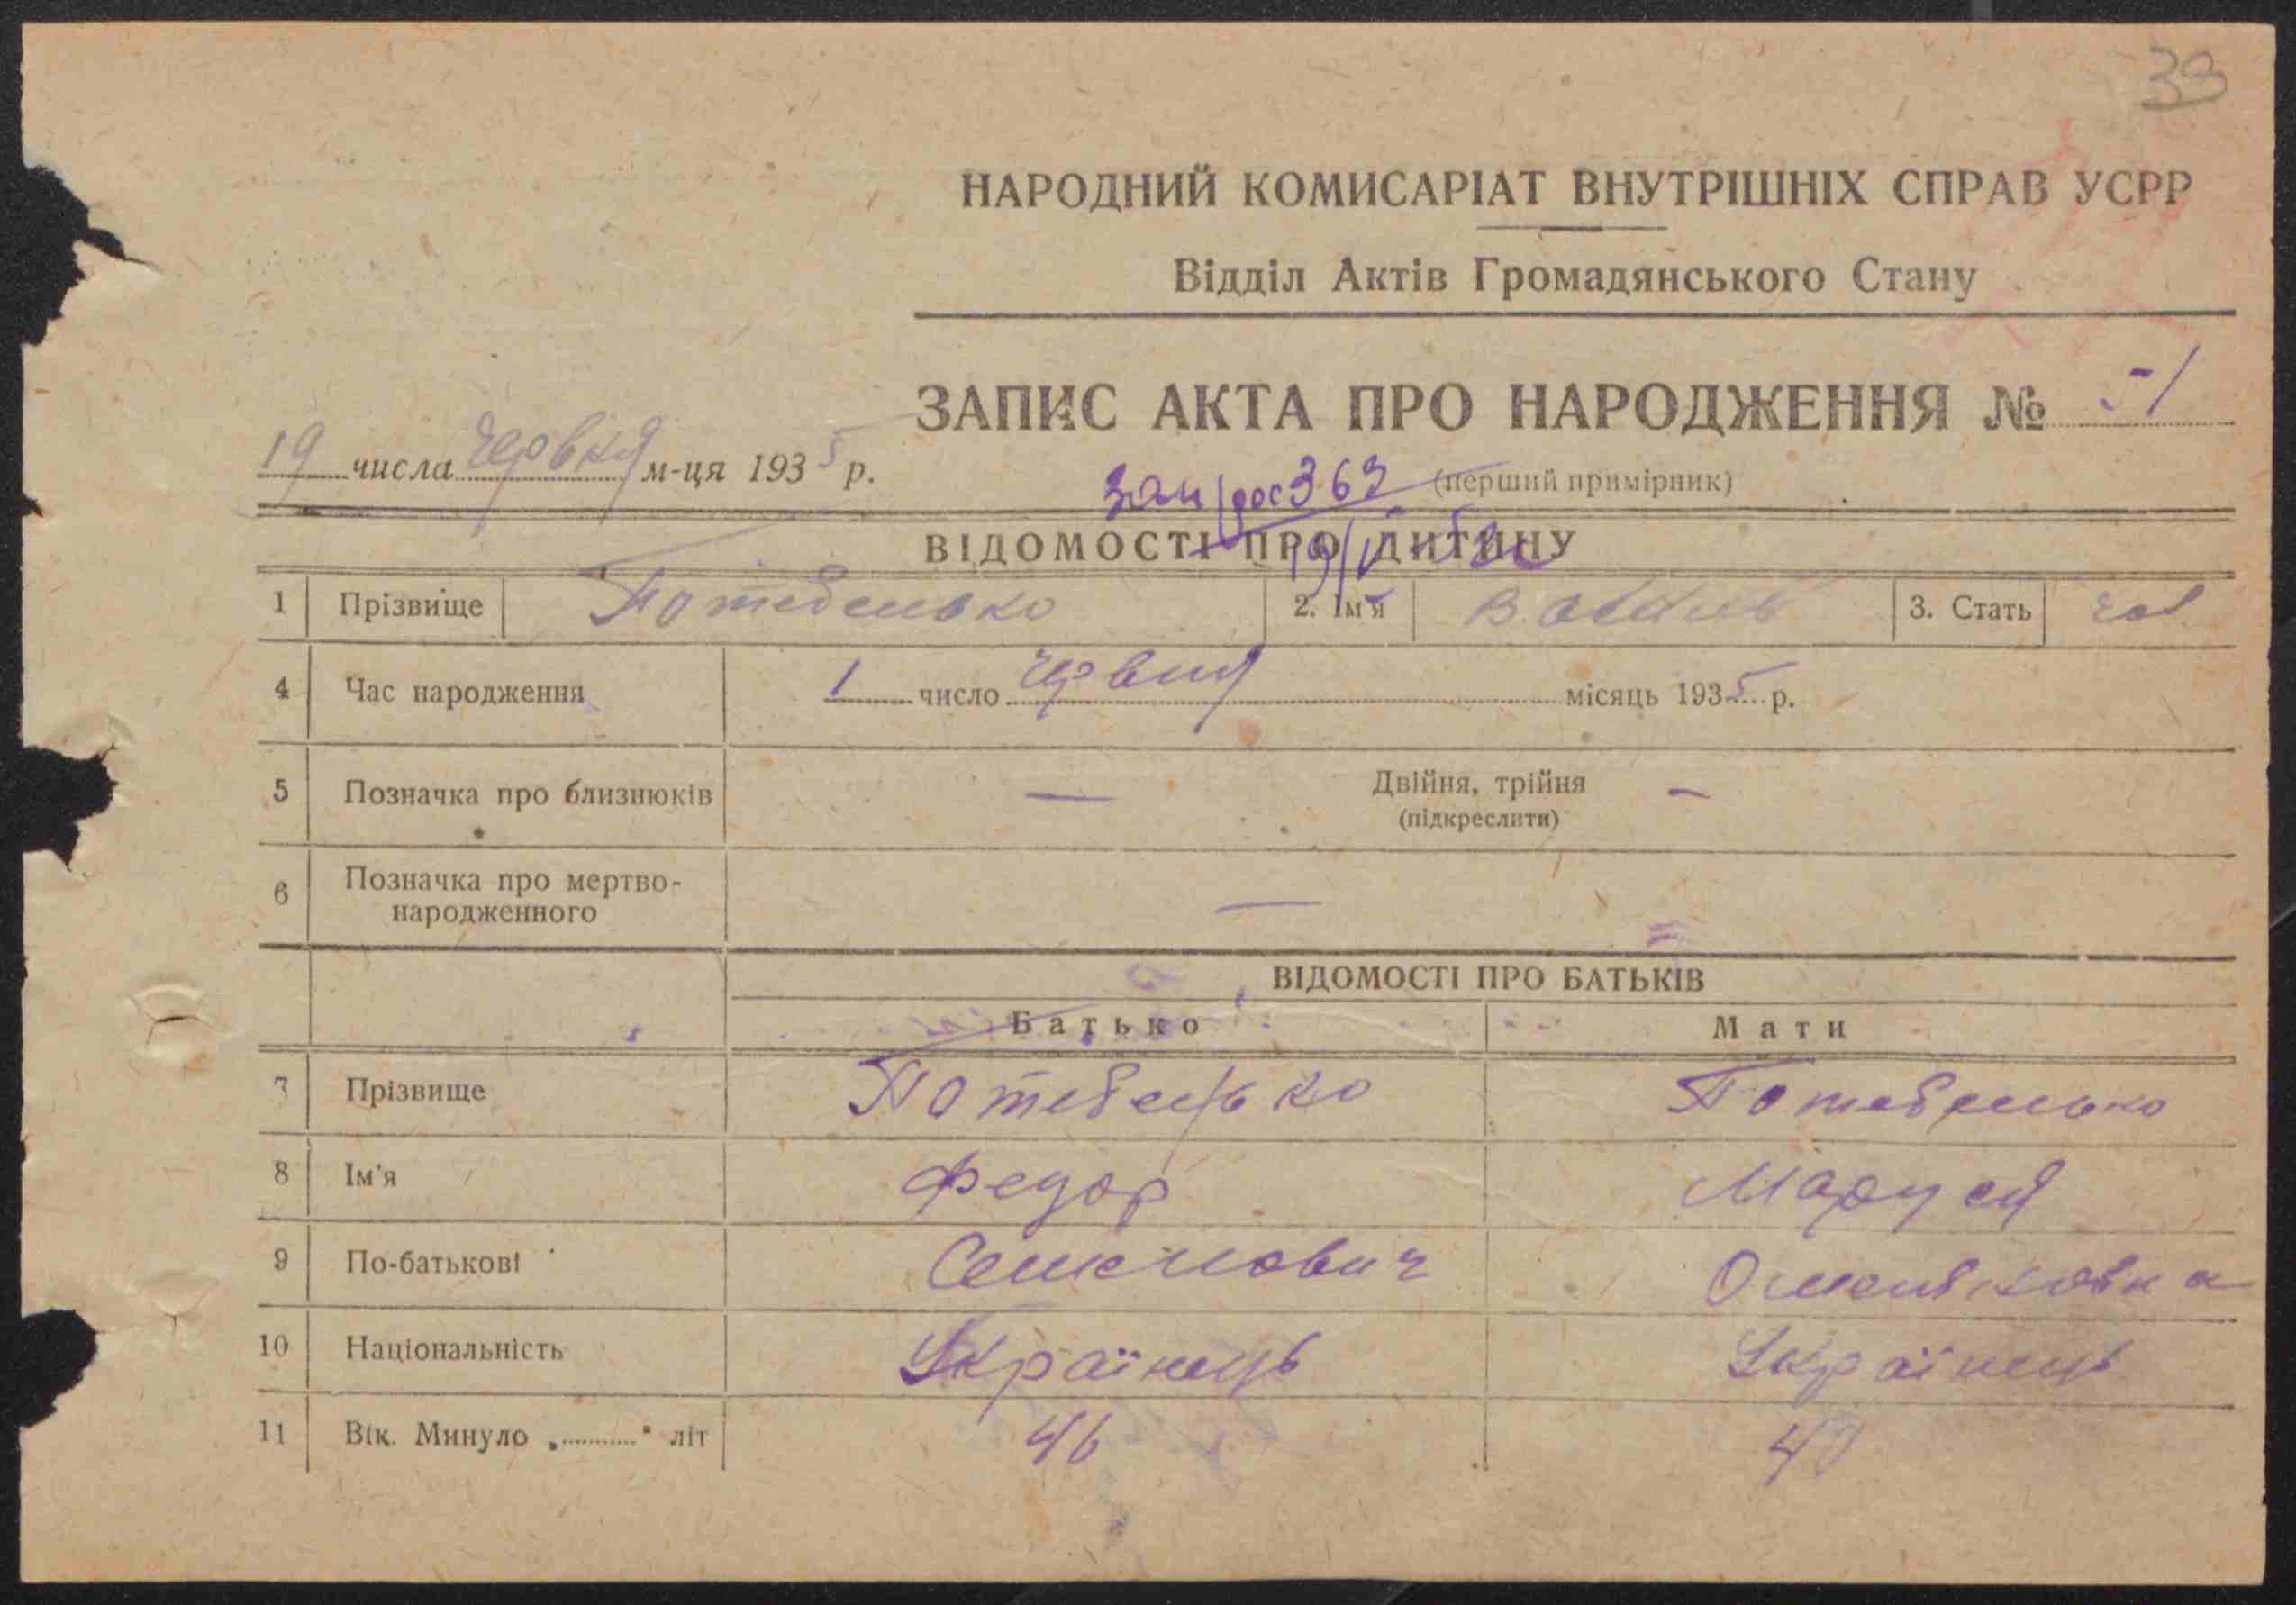 33
НАРОДНИЙ КОМИСАРІАТ ВНУТРІШНІХ СПРАВ УСРР
Відділ Актів Громадянського Стану
ЗАПИС АКТА ПРО НАРОДЖЕННЯ № 51
19 числа червня м-ця 1935 р.
363 (перший примірник)
ВІДОМОСТІ ПРО ДИТИНУ
1 Прізвище Потебенько 2. Ім'я 3. Стать чол.
4 Час народження 1 число червня місяць 1935 р.
5 Позначка про близнюків — Двійня, трійня —
(підкреслити)
6 Позначка про мертво-
народженного —
ВІДОМОСТІ ПРО БАТЬКІВ
Батько Мати
7 Прізвище Потебенько Потебенько
8 Ім'я Федор Маруся
9 По-батькові Семенович
10 Національність Українець Українець
11 Вік. Минуло „........“ літ 46